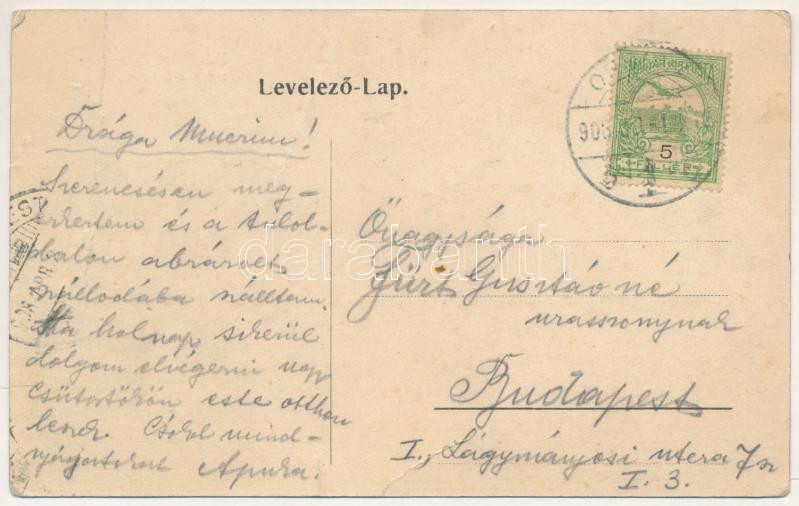 Levelező-Lap.
MAGYAR KIR. POSTA
5
FILLÉR
Drága Mucrim!
Szerencsésen meg-
érkeztem és a túlol-
dalon ábrázolt
szállodába szálltam.
Ha holnap sikerül
dolgom elvégezni úgy
csütörtökön este otthon
leszek. Csókol mind-
nyájatokat Apuka.
Őnagysága
Fürt Gusztáv né
urasszonynak
Budapest
I., Lágymányosi utcza 7 sz
I. 3.
darabanth